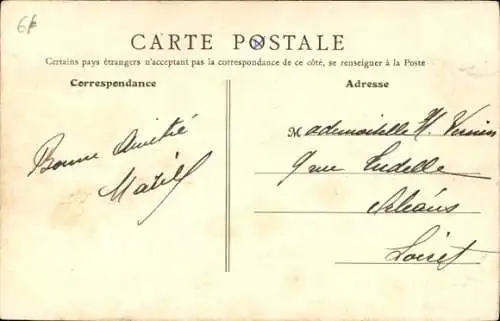 6f
CARTE POSTALE
Certains pays étrangers n'acceptant pas la correspondance de ce côté, se renseigner à la Poste
Correspondance
Adresse
Bonne Amitié
Mademoiselle H. Vernier
9 rue Eudelle
Orléans
Loiret